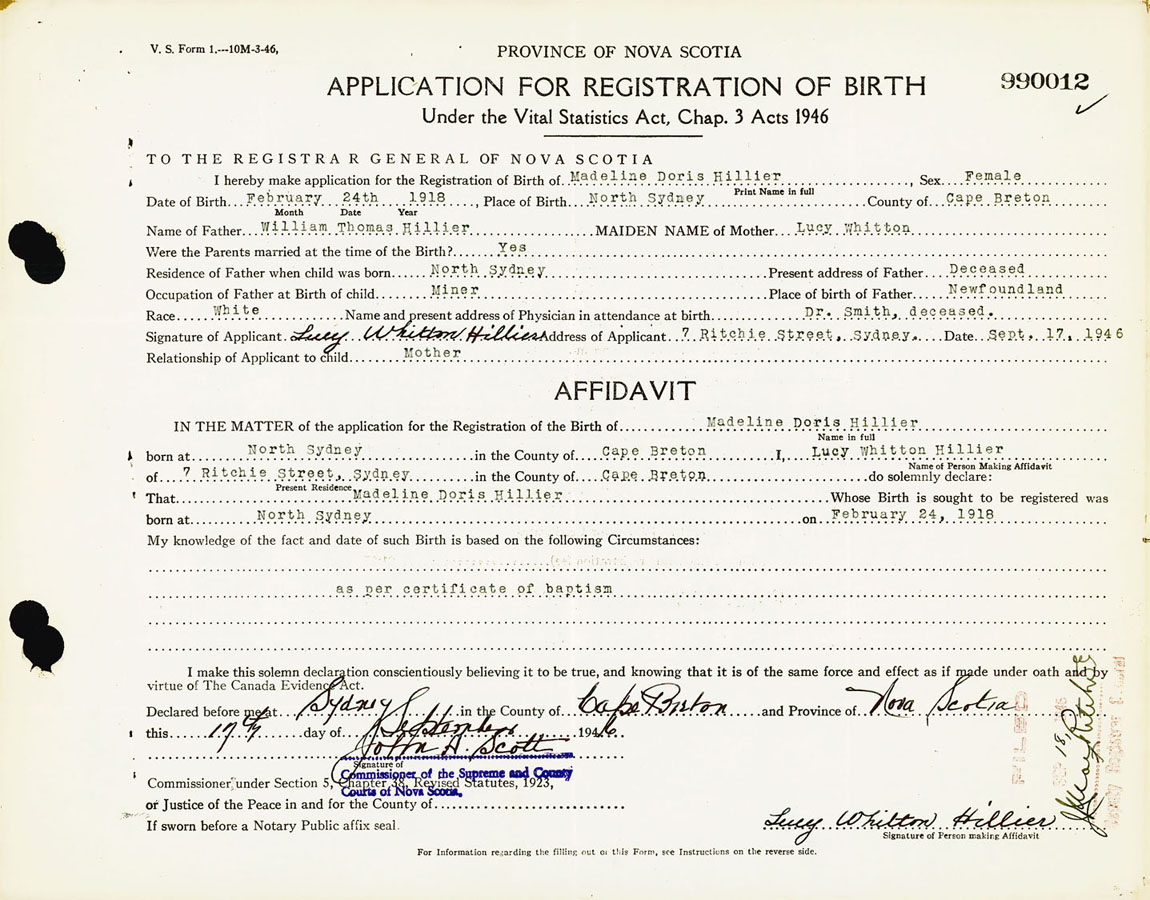 V. S. Form 1.---10M-3-46,
PROVINCE OF NOVA SCOTIA
APPLICATION FOR REGISTRATION OF BIRTH
990012
Under the Vital Statistics Act, Chap. 3 Acts 1946
TO THE REGISTRAR GENERAL OF NOVA SCOTIA
I hereby make application for the Registration of Birth of Madeline Doris Hillier, Sex Female
Print Name in full
Date of Birth February 24th 1918, Place of Birth North Sydney County of Cape Breton
Month Date Year
Name of Father William Thomas Hillier MAIDEN NAME of Mother Lucy Whitton
Were the Parents married at the time of the Birth? Yes
Residence of Father when child was born North Sydney Present address of Father Deceased
Occupation of Father at Birth of child Miner Place of birth of Father Newfoundland
Race White Name and present address of Physician in attendance at birth Dr. Smith, deceased.
Signature of Applicant Lucy Whitton Hillier Address of Applicant 7 Ritchie Street, Sydney, Date Sept. 17, 1946
Relationship of Applicant to child Mother
AFFIDAVIT
IN THE MATTER of the application for the Registration of the Birth of Madeline Doris Hillier
Name in full
born at North Sydney in the County of Cape Breton I, Lucy Whitton Hillier
Name of Person Making Affidavit
of 7 Ritchie Street, Sydney in the County of Cape Breton do solemnly declare:
Present Residence
That Madeline Doris Hillier Whose Birth is sought to be registered was
born at North Sydney on February 24, 1918
My knowledge of the fact and date of such Birth is based on the following Circumstances:
as per certificate of baptism
I make this solemn declaration conscientiously believing it to be true, and knowing that it is of the same force and effect as if made under oath and by
virtue of The Canada Evidence Act.
Declared before me at Sydney in the County of Cape Breton and Province of Nova Scotia
this 17th day of September 1946.
John A. Scott
Signature of
Commissioner of the Supreme and County
Commissioner under Section 5, Chapter 38, Revised Statutes, 1923,
Courts of Nova Scotia.
or Justice of the Peace in and for the County of
If sworn before a Notary Public affix seal.
Lucy Whitton Hillier
Signature of Person making Affidavit
For Information regarding the filling out of this Form, see Instructions on the reverse side.
FILED